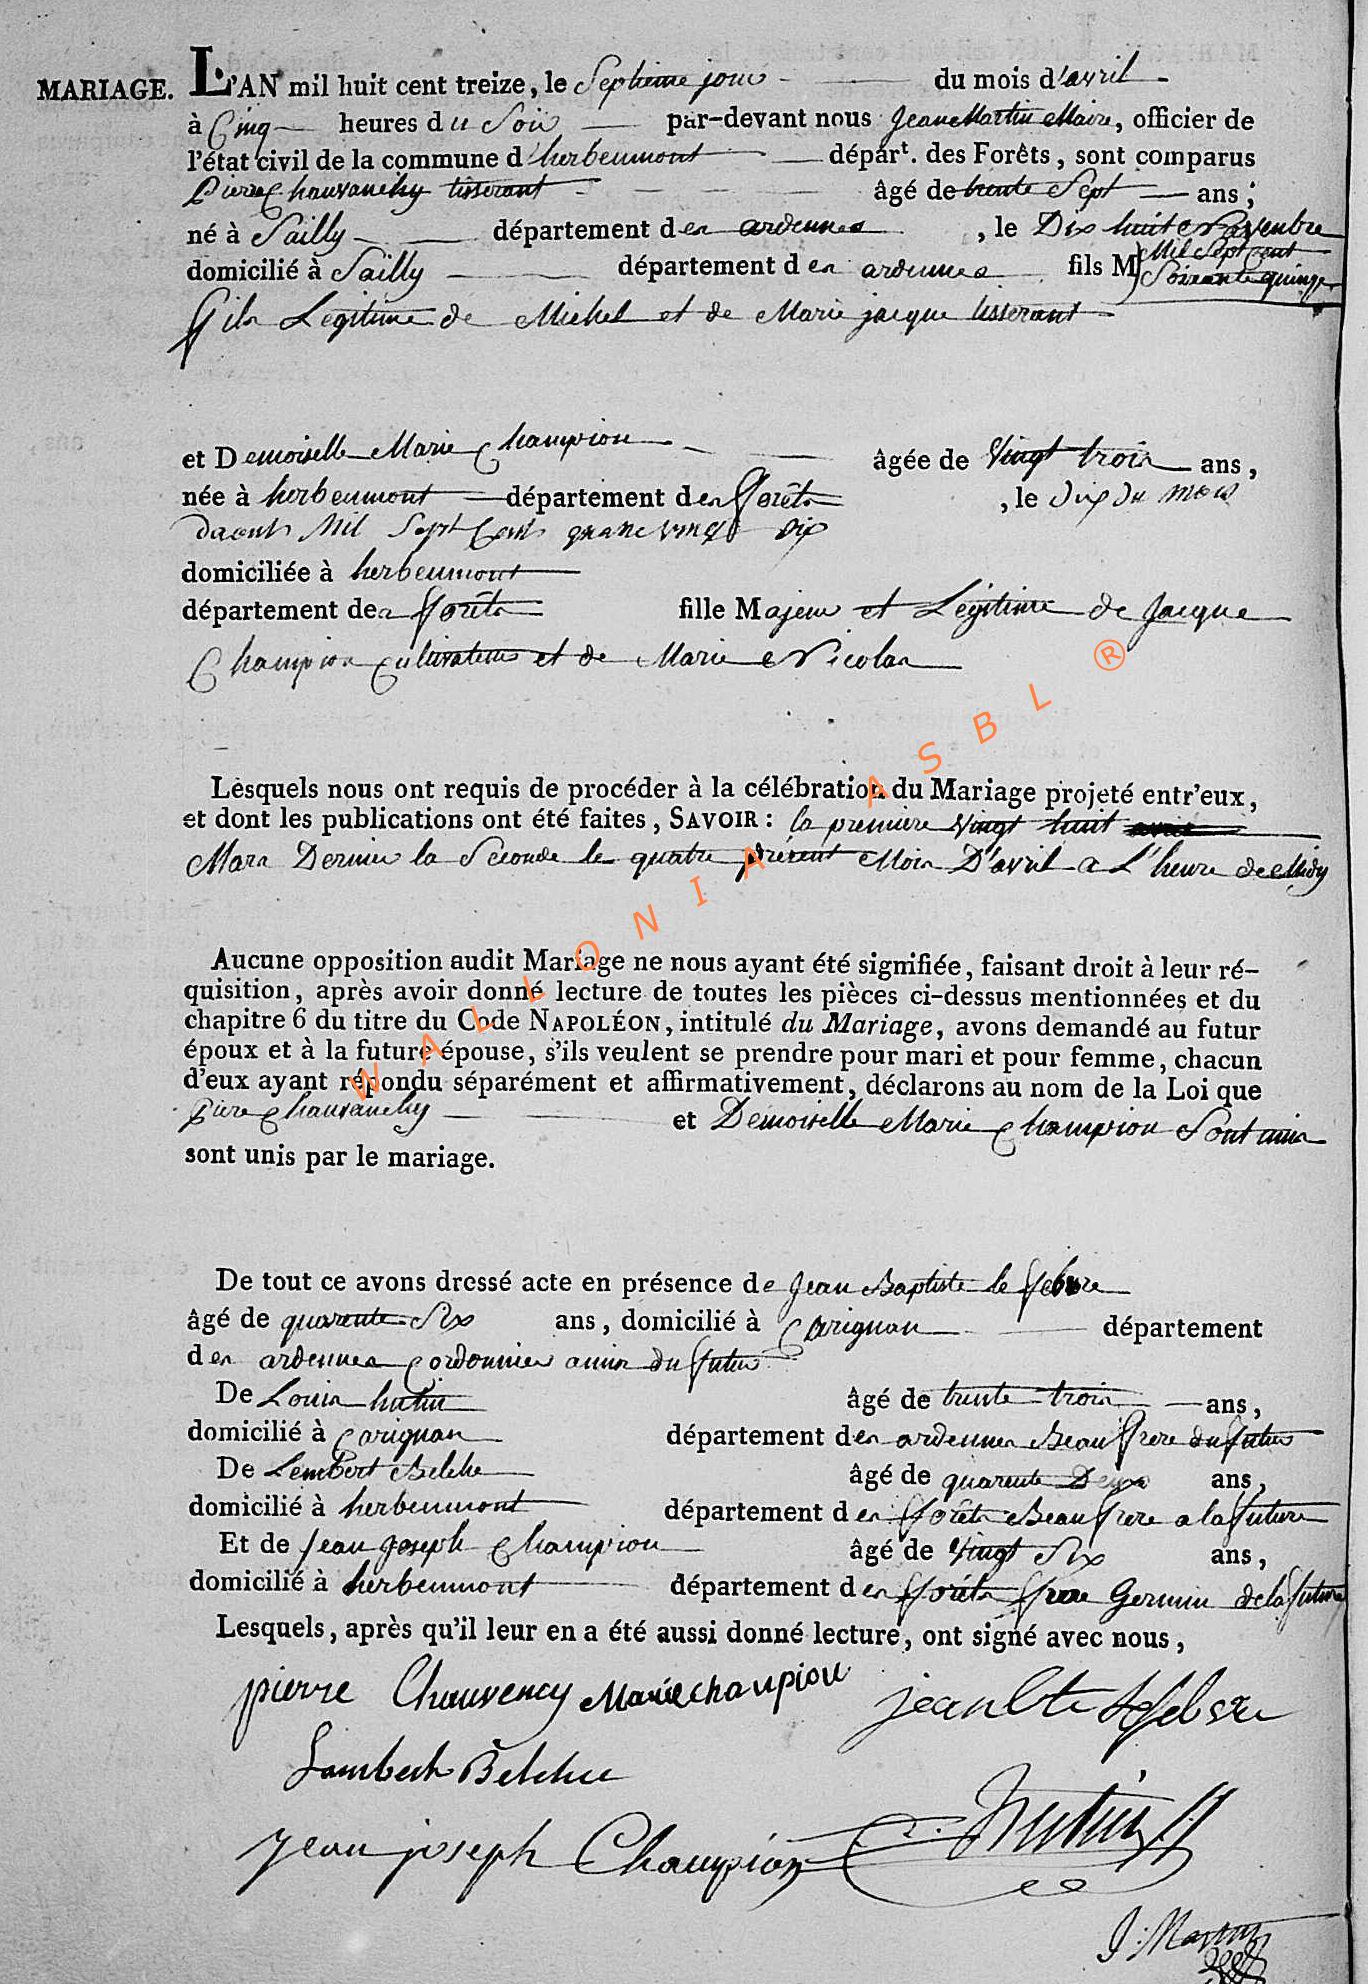 MARIAGE. L'AN mil huit cent treize, le Septieme jour du mois d'avril
à Cinq heures du Soir par-devant nous Jean Martin Maire, officier de
l'état civil de la commune d'herbeumont départ. des Forêts, sont comparus
Pierre Chauvanchy tisserant âgé de trente Sept ans;
né à Sailly département des ardennes, le Dix huit Novembre
Mil Sept Cent
domicilié à Sailly département des ardennes fils M Soixante quinze
fils Legitime de Michel et de Marie jacque tisserant
et Demoiselle Marie Champion âgée de Vingt trois ans,
née à herbeumont département des forêts, le dix du mois
daout Mil Sept Cent quatre vingt dix
domiciliée à herbeumont
département des forêts fille Majeur et Légitime de Jacque
Champion Cultivateur et de Marie Nicolas
Lesquels nous ont requis de procéder à la célébration du Mariage projeté entr'eux,
et dont les publications ont été faites, SAVOIR: la premiere Vingt huit
Mars Dernier la Seconde le quatre présent Mois D'avril a L'heure de Midy
Aucune opposition audit Mariage ne nous ayant été signifiée, faisant droit à leur ré-
quisition, après avoir donné lecture de toutes les pièces ci-dessus mentionnées et du
chapitre 6 du titre du Code NAPOLÉON, intitulé du Mariage, avons demandé au futur
époux et à la future épouse, s'ils veulent se prendre pour mari et pour femme, chacun
d'eux ayant répondu séparément et affirmativement, déclarons au nom de la Loi que
Piere Chauvanchy et Demoiselle Marie Champion Sont unis
sont unis par le mariage.
De tout ce avons dressé acte en présence de Jean Baptiste le febvre
âgé de quarente Six ans, domicilié à Carignan département
des ardennes Cordonnier amis du futur
De Louis hutin âgé de trente trois ans,
domicilié à Carignan département des ardennes Beau frere du futur
De Lembert Belche âgé de quarente Deux ans,
domicilié à herbeumont département des forêts Beau frere a la future
Et de Jean Joseph Champion âgé de Vingt Six ans,
domicilié à herbeumont département des forêts frere Germin de la future
Lesquels, après qu'il leur en a été aussi donné lecture, ont signé avec nous,
pierre Chauvency Marie chanpion jean bte Lefebvre
Lambert Belche
jean joseph Champion Hutin
J: Martin
WALLONIA ASBL ®